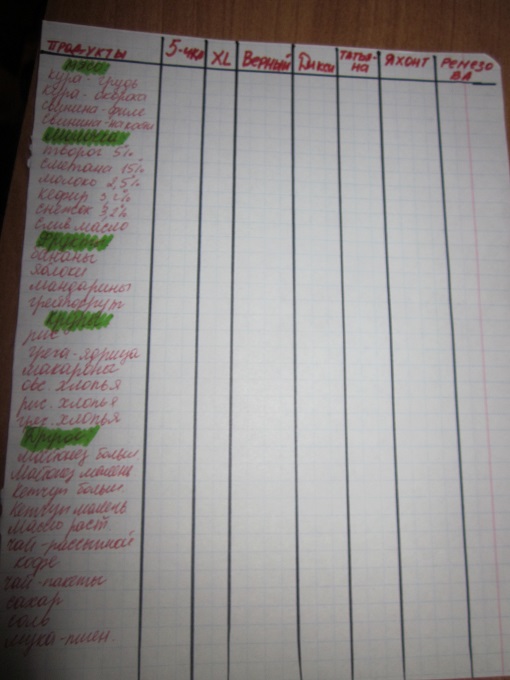 Продукты 5-чка XL Верный Дикси Татья-на Яхонт Ремезова
Мясо
кура-грудь
кура-окорока
свинина-филе
свинина-на кости
Молочка
творог 5%
сметана 15%
молоко 2,5%
кефир 3,2%
снежок 3,2%
слив. масло
Фрукты
бананы
яблоки
мандарины
грейпфрут
Крупы
рис
греча-ядрица
макароны
овс. хлопья
рис. хлопья
греч. хлопья
Другое
майонез больш.
майонез малень
кетчуп больш.
кетчуп малень
масло раст.
чай-рассыпной
кофе
чай-пакеты
сахар
соль
мука-пшен.